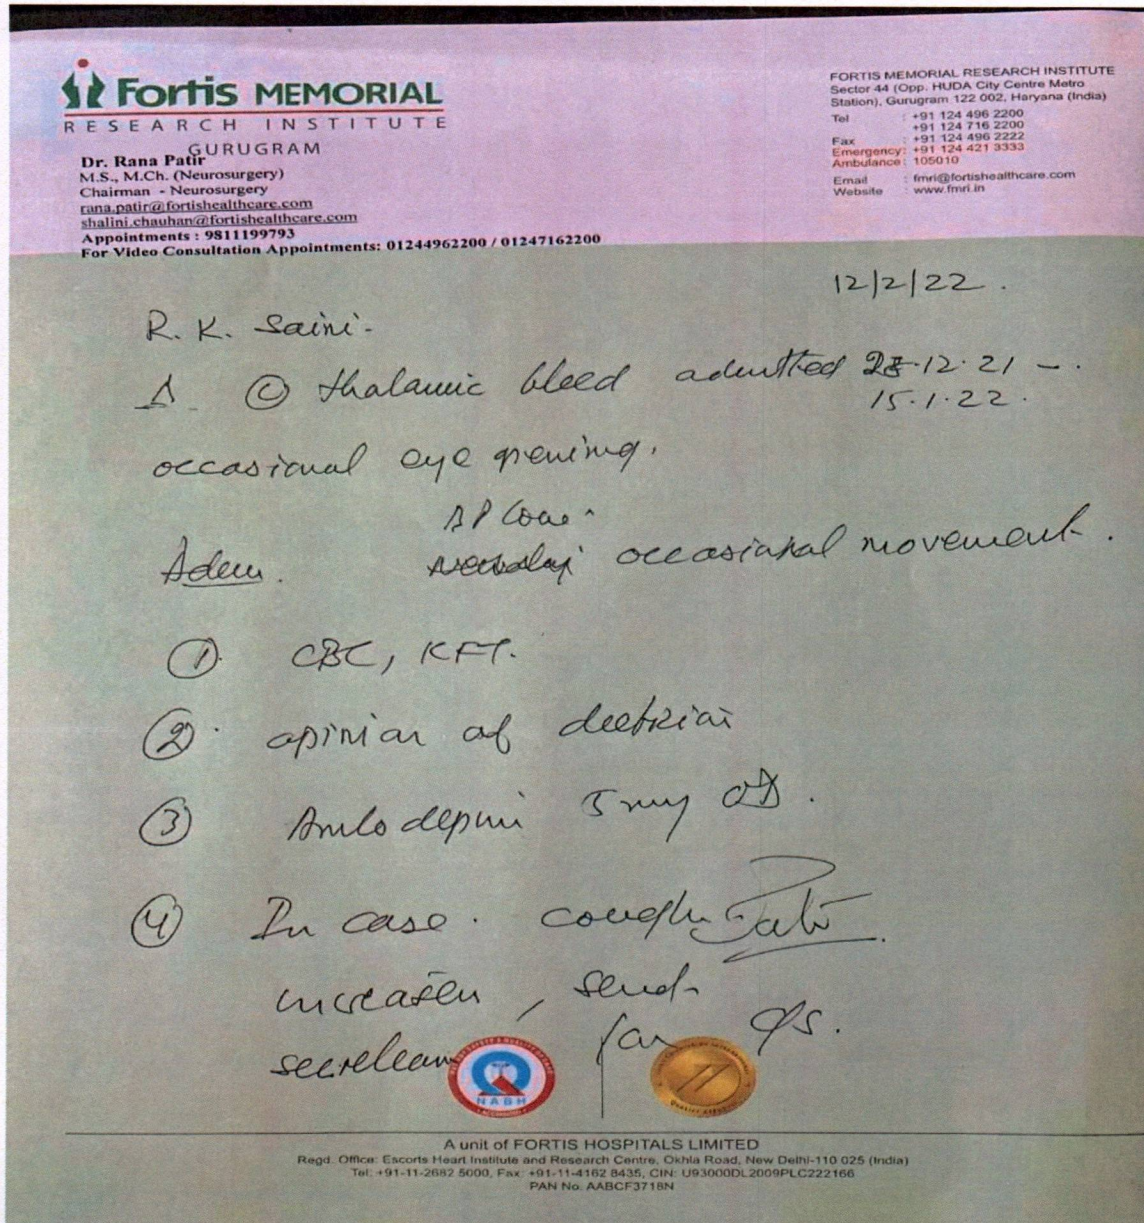 Fortis MEMORIAL
RESEARCH INSTITUTE
GURUGRAM
Dr. Rana Patir
M.S., M.Ch. (Neurosurgery)
Chairman - Neurosurgery
rana.patir@fortishealthcare.com
shalini.chauhan@fortishealthcare.com
Appointments : 9811199793
For Video Consultation Appointments: 01244962200 / 01247162200
FORTIS MEMORIAL RESEARCH INSTITUTE
Sector 44 (Opp. HUDA City Centre Metro
Station), Gurugram 122 002, Haryana (India)
Tel : +91 124 496 2200
+91 124 716 2200
Fax : +91 124 496 2222
Emergency: +91 124 421 3333
Ambulance : 105010
Email : fmri@fortishealthcare.com
Website : www.fmri.in
12/2/22.
R. K. Saini-
thalamic bleed admitted 28.12.21 -.
15.1.22.
occasional eye opening.
occasional movement.
① CBC, KFT.
② opinion of
③ 5 mg OD.
④ In case. cough
increases, send
for c/s.
NABH
A unit of FORTIS HOSPITALS LIMITED
Regd. Office: Escorts Heart Institute and Research Centre, Okhla Road, New Delhi-110 025 (India)
Tel: +91-11-2682 5000, Fax: +91-11-4162 8435, CIN: U93000DL2009PLC222166
PAN No. AABCF3718N